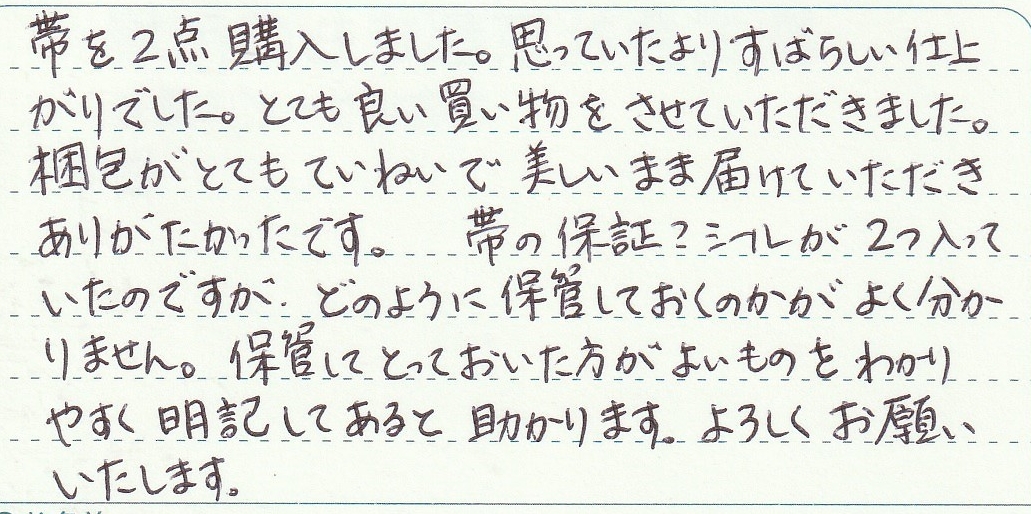 帯を2点購入しました。思っていたよりすばらしい仕上
がりでした。とても良い買い物をさせていただきました。
梱包がとてもていねいで美しいまま届けていただき
ありがたかったです。 帯の保証?シールが2つ入って
いたのですが、どのように保管しておくのかがよく分か
りません。保管してとっておいた方がよいものをわかり
やすく明記してあると助かります。よろしくお願い
いたします。